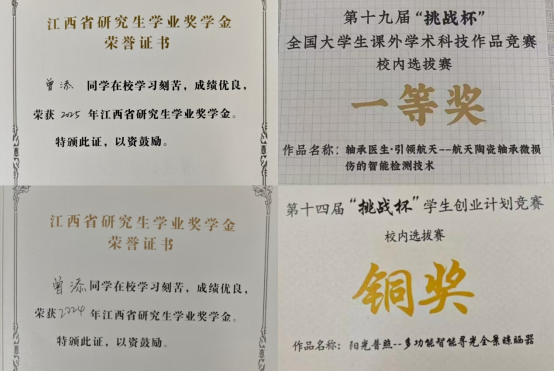 江西省研究生学业奖学金
荣誉证书
曾添 同学在校学习刻苦，成绩优良，
荣获 2025 年江西省研究生学业奖学金。
特颁此证，以资鼓励。
第十九届“挑战杯”
全国大学生课外学术科技作品竞赛
校内选拔赛
一等奖
作品名称：轴承医生·引领航天--航天陶瓷轴承微损
伤的智能检测技术
江西省研究生学业奖学金
荣誉证书
曾添 同学在校学习刻苦，成绩优良，
荣获 2024 年江西省研究生学业奖学金。
特颁此证，以资鼓励。
第十四届“挑战杯”学生创业计划竞赛
校内选拔赛
铜奖
作品名称：阳光普照--多功能智能寻光全景晾晒器